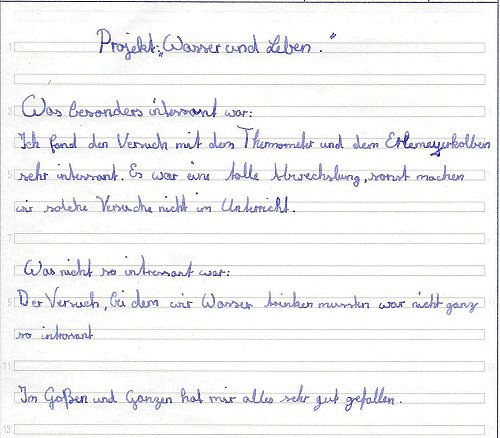 Projekt: „Wasser und Leben."
Was besonders intressant war:
Ich fand den Versuch mit dem Thermometer und dem Erlemeyerkolben
sehr intressant. Es war eine tolle Abwechslung, sonst machen
wir solche Versuche nicht im Unterricht.
Was nicht so intressant war:
Der Versuch, bei dem wir Wasser trinken mussten war nicht ganz
so intressant
Im Goßen und Ganzen hat mir alles sehr gut gefallen.